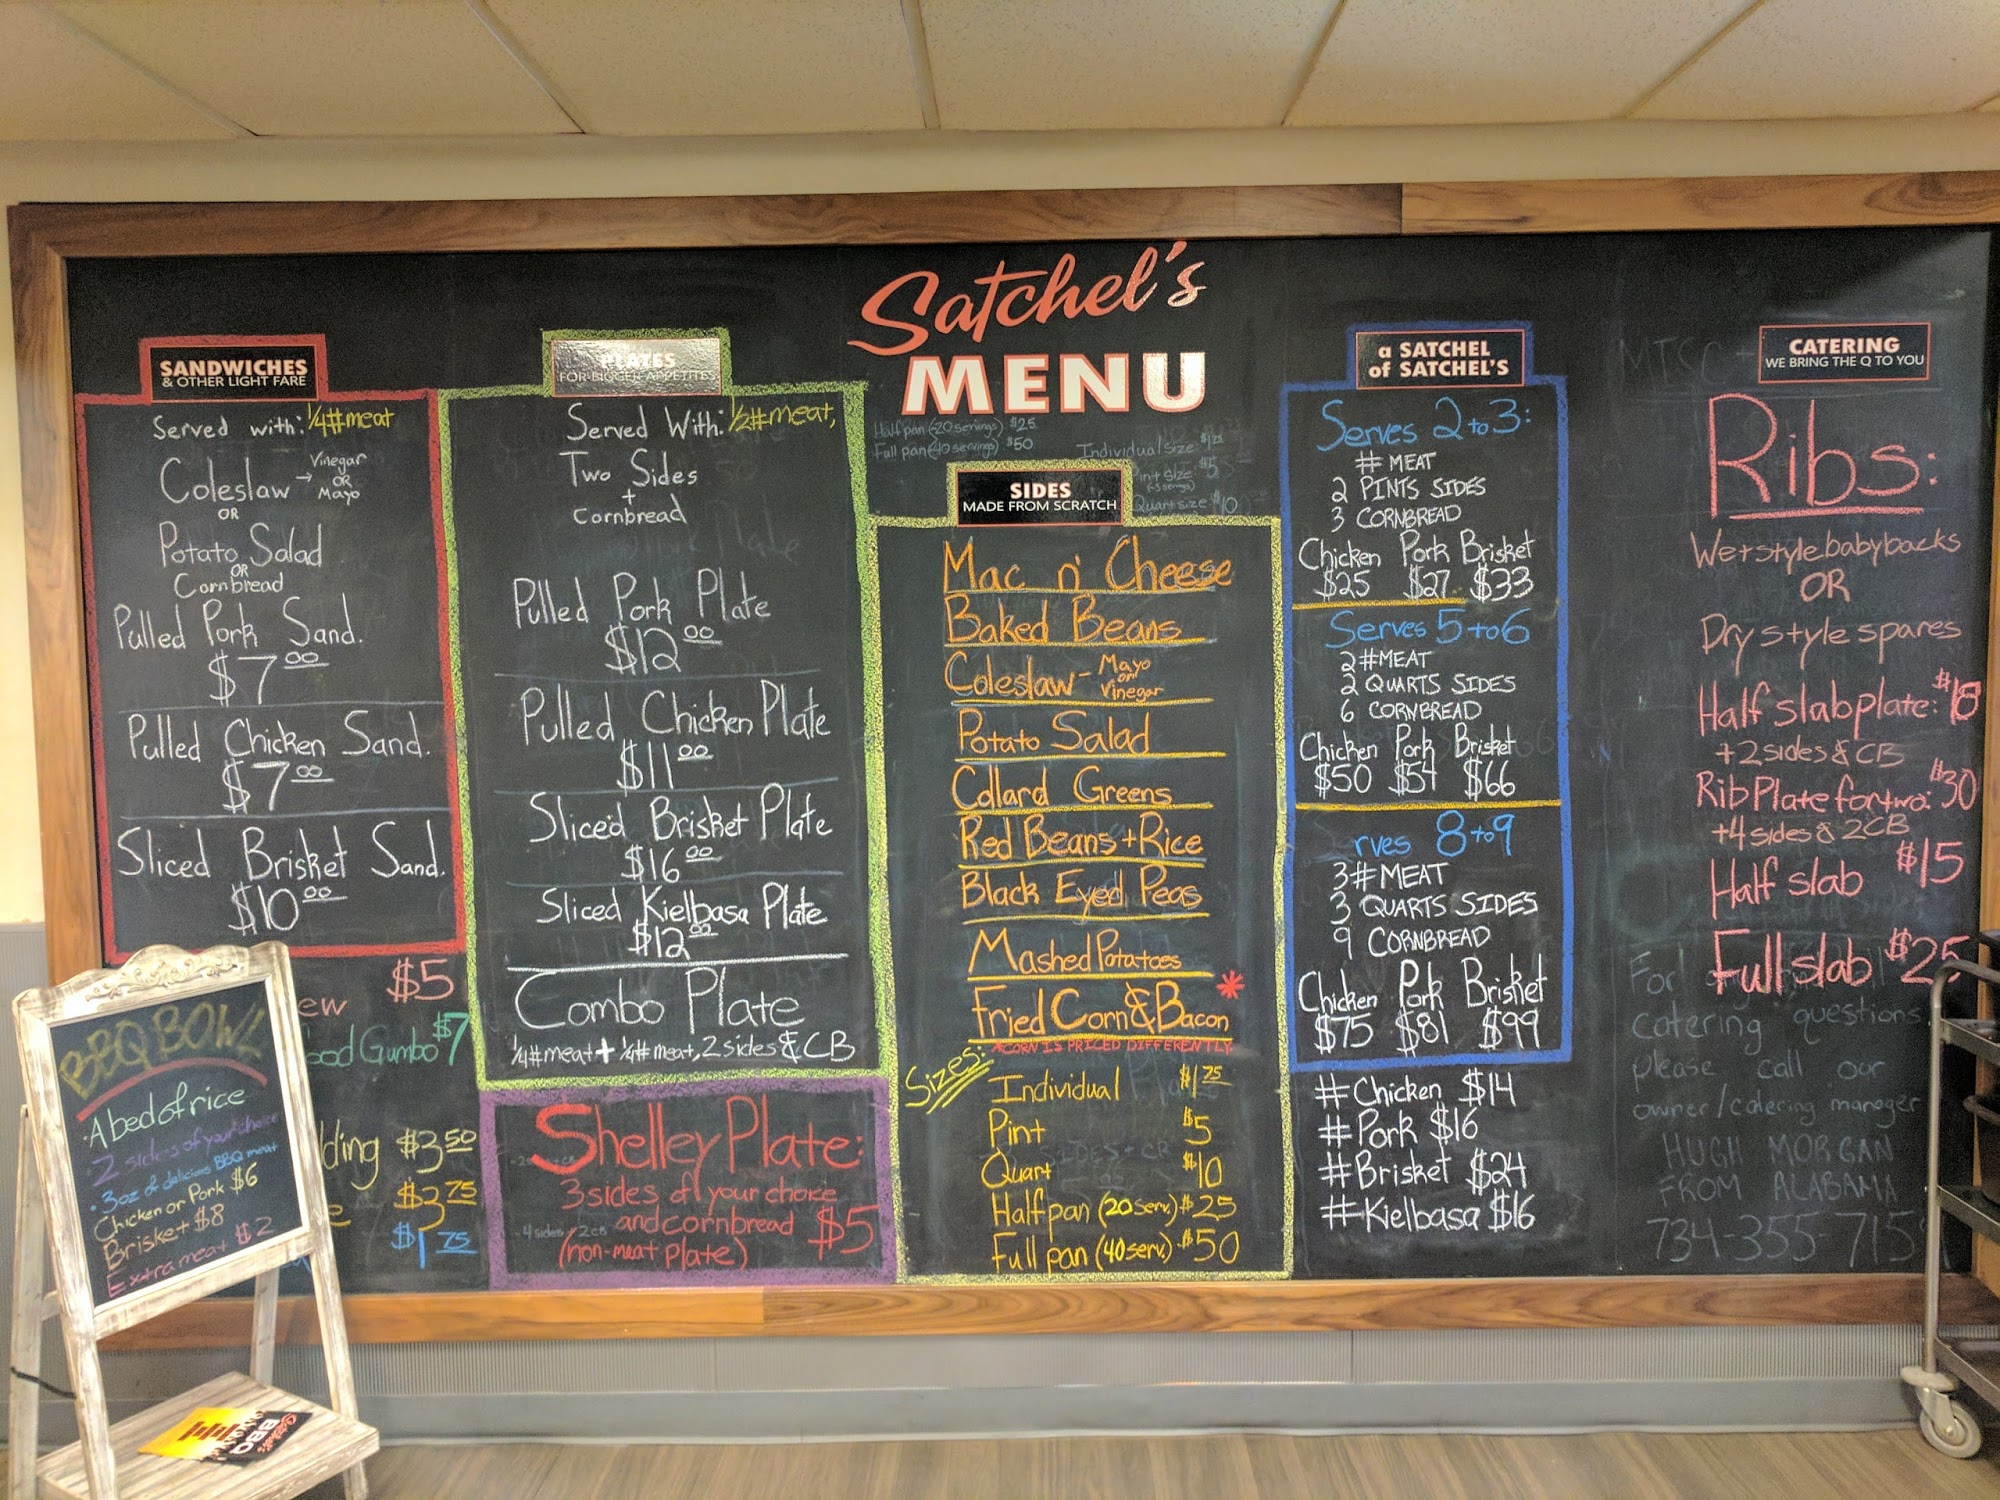 Satchel's
MENU
SANDWICHES
& OTHER LIGHT FARE
Served with: 1/4# meat
Coleslaw → Vinegar
OR
Mayo
OR
Potato Salad
OR
Cornbread
Pulled Pork Sand.
$7.00
Pulled Chicken Sand.
$7.00
Sliced Brisket Sand.
$10.00
ew $5
ood Gumbo $7
lding $3.50
e $3.75
$1.75
BBQ BOWL
·A bed of rice
2 sides of your choice
·3oz of delicious BBQ meat
Chicken or Pork $6
Brisket $8
Extra meat $2
Satchel's
BBQ
PLATES
FOR BIGGER APPETITES
Served With: 1/2# meat,
Two Sides
+
Cornbread
Pulled Pork Plate
$12.00
Pulled Chicken Plate
$11.00
Sliced Brisket Plate
$16.00
Sliced Kielbasa Plate
$12.00
Combo Plate
1/4# meat + 1/4# meat, 2 sides & CB
Shelley Plate:
3 sides of your choice
and cornbread $5
(non-meat plate)
- 4 sides / 2 CB
Half pan (20 servings) $25
Full pan (40 servings) $50
Individual size
Pint size $5
Quart size $10
SIDES
MADE FROM SCRATCH
Mac n' Cheese
Baked Beans
Coleslaw - Mayo
or
Vinegar
Potato Salad
Collard Greens
Red Beans + Rice
Black Eyed Peas
Mashed Potatoes
Fried Corn & Bacon *
*CORN IS PRICED DIFFERENTLY
Sizes:
Individual $1.75
Pint $5
Quart $10
Half pan (20 serv.) $25
Full pan (40 serv.) $50
a SATCHEL
of SATCHEL'S
Serves 2 to 3:
# MEAT
2 PINTS SIDES
3 CORNBREAD
Chicken Pork Brisket
$25 $27 $33
Serves 5 to 6
2 # MEAT
2 QUARTS SIDES
6 CORNBREAD
Chicken Pork Brisket
$50 $54 $66
rves 8 to 9
3 # MEAT
3 QUARTS SIDES
9 CORNBREAD
Chicken Pork Brisket
$75 $81 $99
# Chicken $14
# Pork $16
# Brisket $24
# Kielbasa $16
MISC
CATERING
WE BRING THE Q TO YOU
Ribs:
Wet style babybacks
OR
Dry style spares
Half slab plate: $18
+ 2 sides & CB
Rib Plate for two: $30
+4 sides & 2CB
Half slab $15
Full slab $25
For
catering questions
please call our
owner/catering manager
HUGH MORGAN
FROM ALABAMA
734-355-715